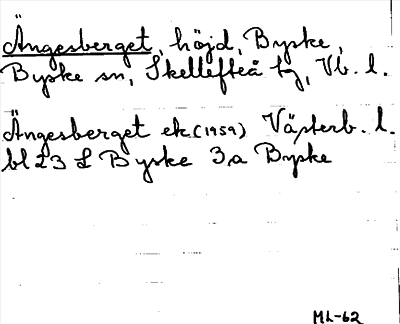 Ängesberget, höjd, Byske,
Byske sn, Skellefteå tg, Vb. l.
Ängesberget ek (1959) Västerb. l.
bl 23 L Byske 3,a Byske
ML-62